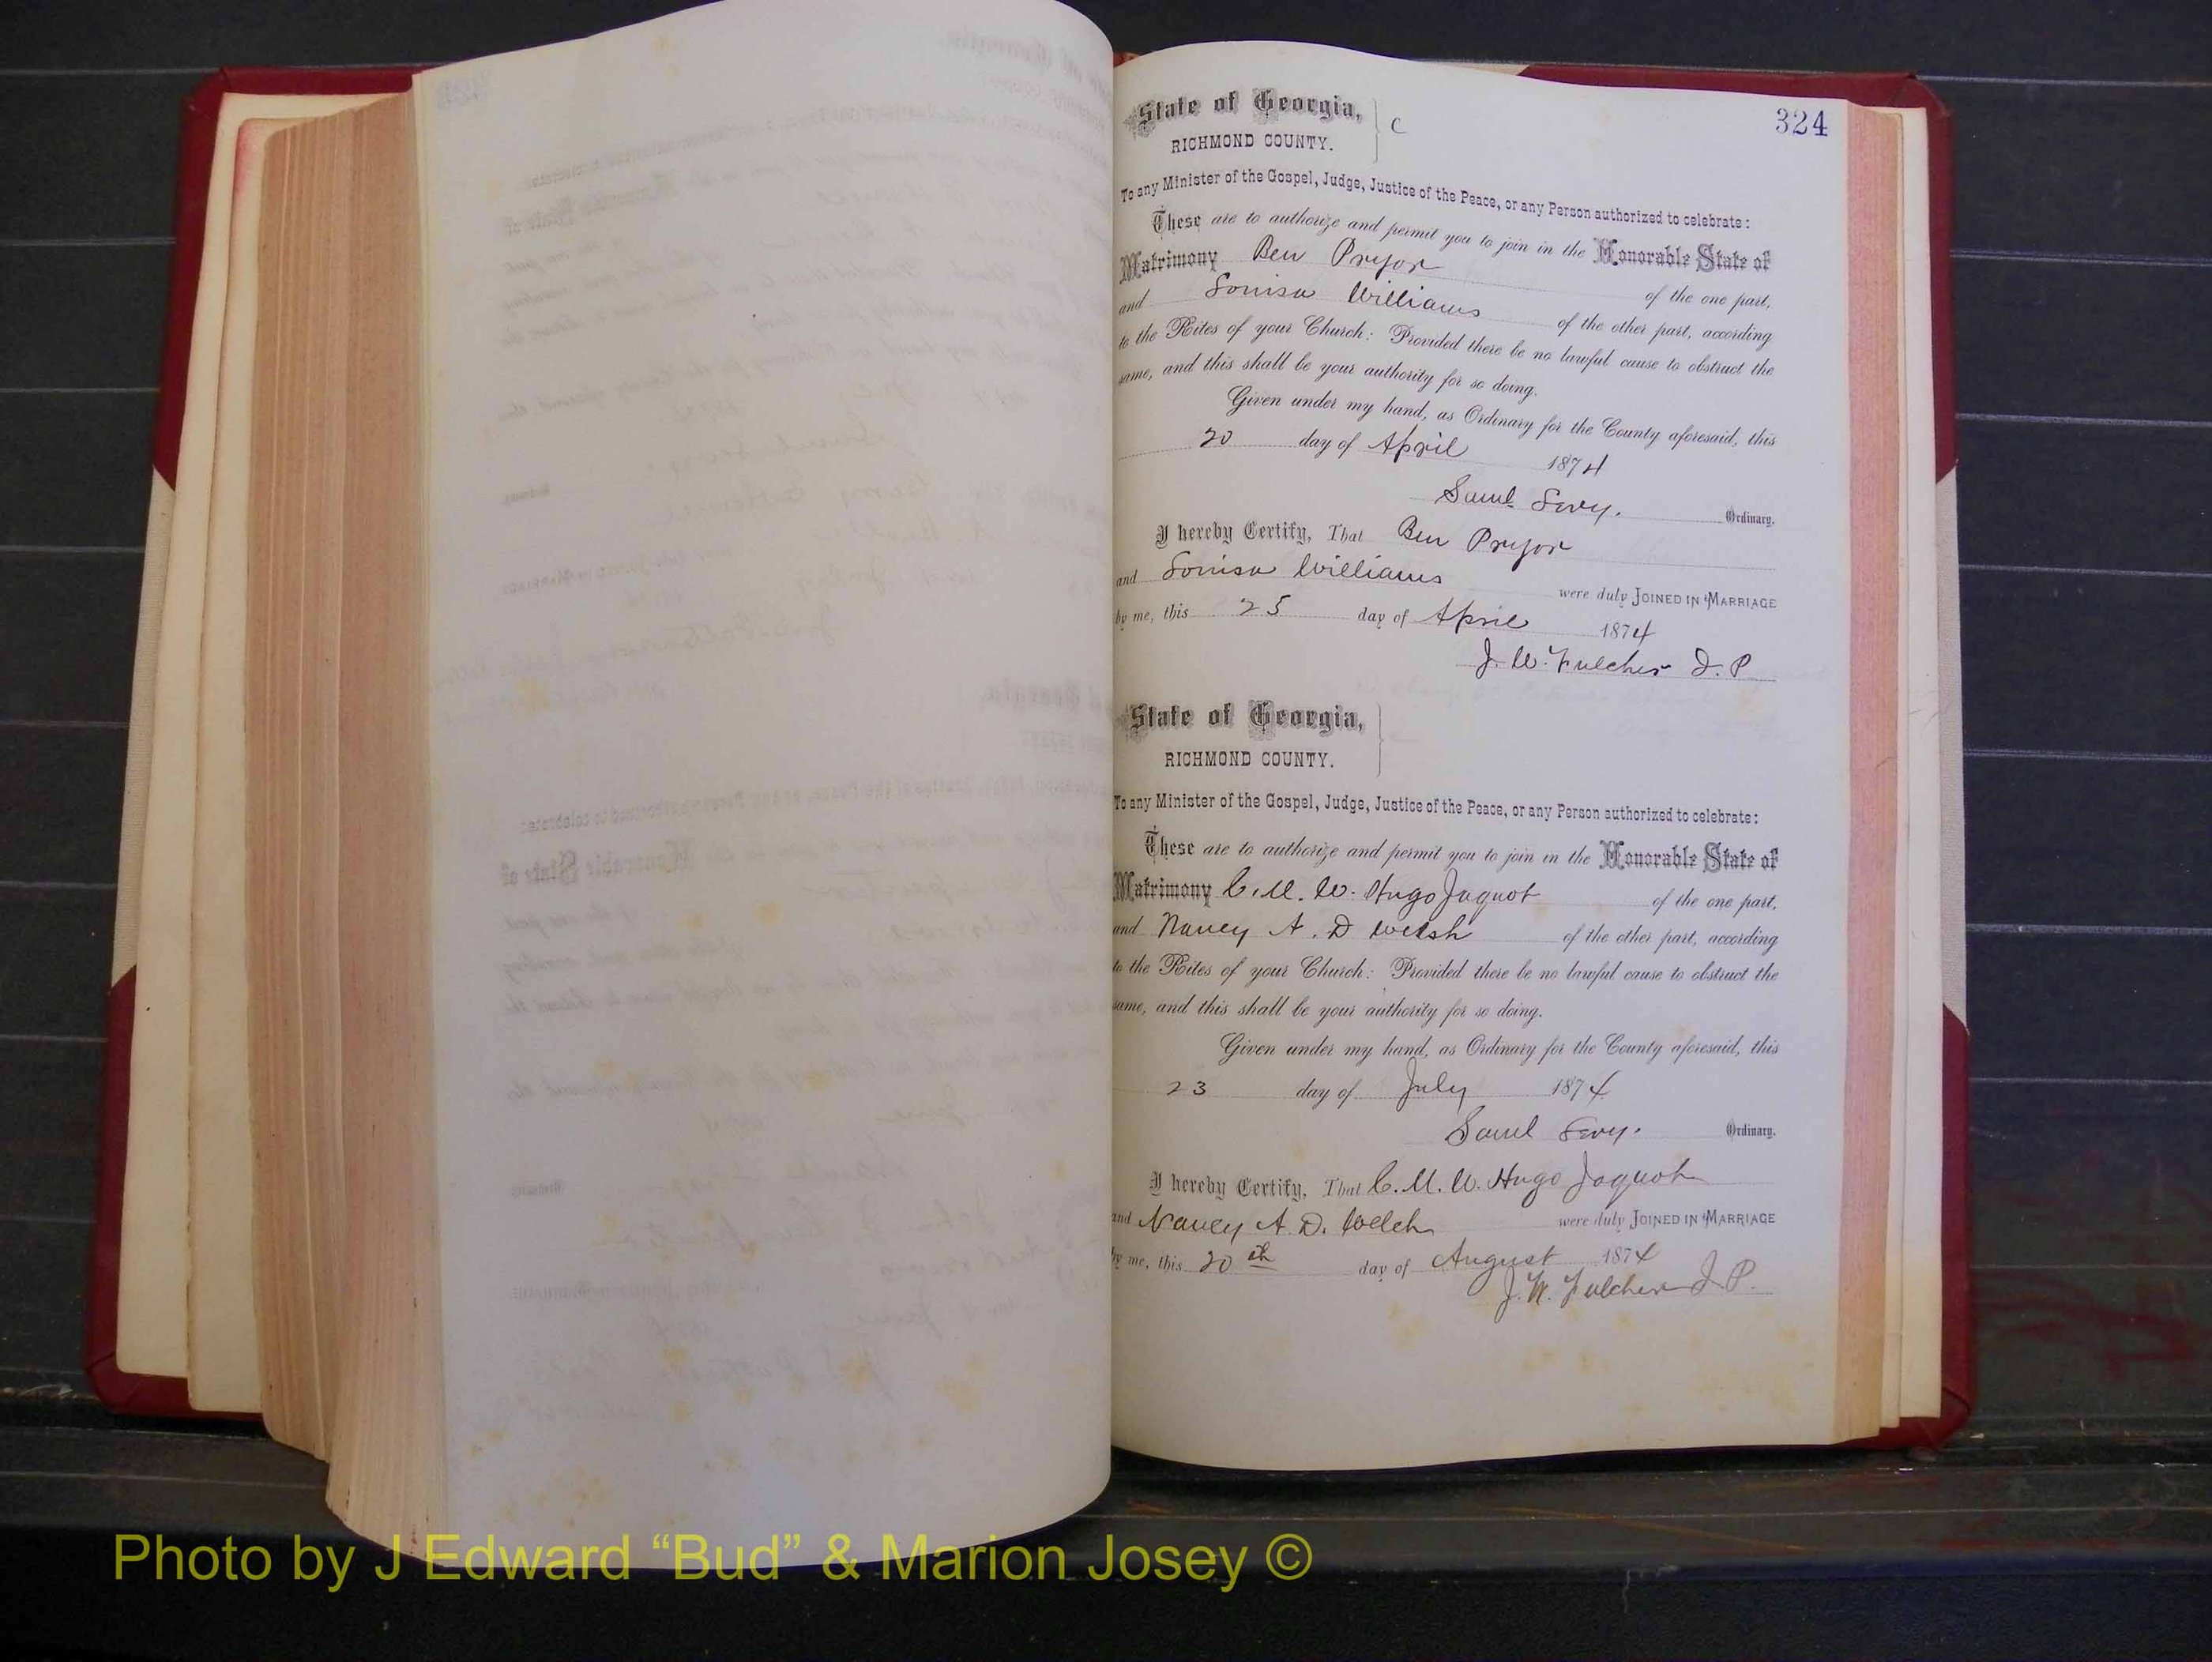 324
State of Georgia, C
RICHMOND COUNTY.
To any Minister of the Gospel, Judge, Justice of the Peace, or any Person authorized to celebrate:
These are to authorize and permit you to join in the Honorable State of
Matrimony Ben Pryor of the one part,
and Louisa Williams of the other part, according
to the Rites of your Church: Provided there be no lawful cause to obstruct the
same, and this shall be your authority for so doing.
Given under my hand, as Ordinary for the County aforesaid, this
20 day of April 1874
Saml Levy. Ordinary.
I hereby Certify, That Ben Pryor
and Louisa Williams were duly JOINED IN MARRIAGE
by me, this 25 day of April 1874
J. W. Fulcher J. P
State of Georgia,
RICHMOND COUNTY.
To any Minister of the Gospel, Judge, Justice of the Peace, or any Person authorized to celebrate:
These are to authorize and permit you to join in the Honorable State of
Matrimony C. M. W. Hugo Jaquot of the one part,
and Nancy A. D Welsh of the other part, according
to the Rites of your Church: Provided there be no lawful cause to obstruct the
same, and this shall be your authority for so doing.
Given under my hand, as Ordinary for the County aforesaid, this
23 day of July 1874
Saml Levy. Ordinary.
I hereby Certify, That C. M. W. Hugo Jaquot
and Nancy A. D. Welch were duly JOINED IN MARRIAGE
by me, this 20th day of August 1874
J. W. Fulcher J. P.
Photo by J Edward “Bud” & Marion Josey ©